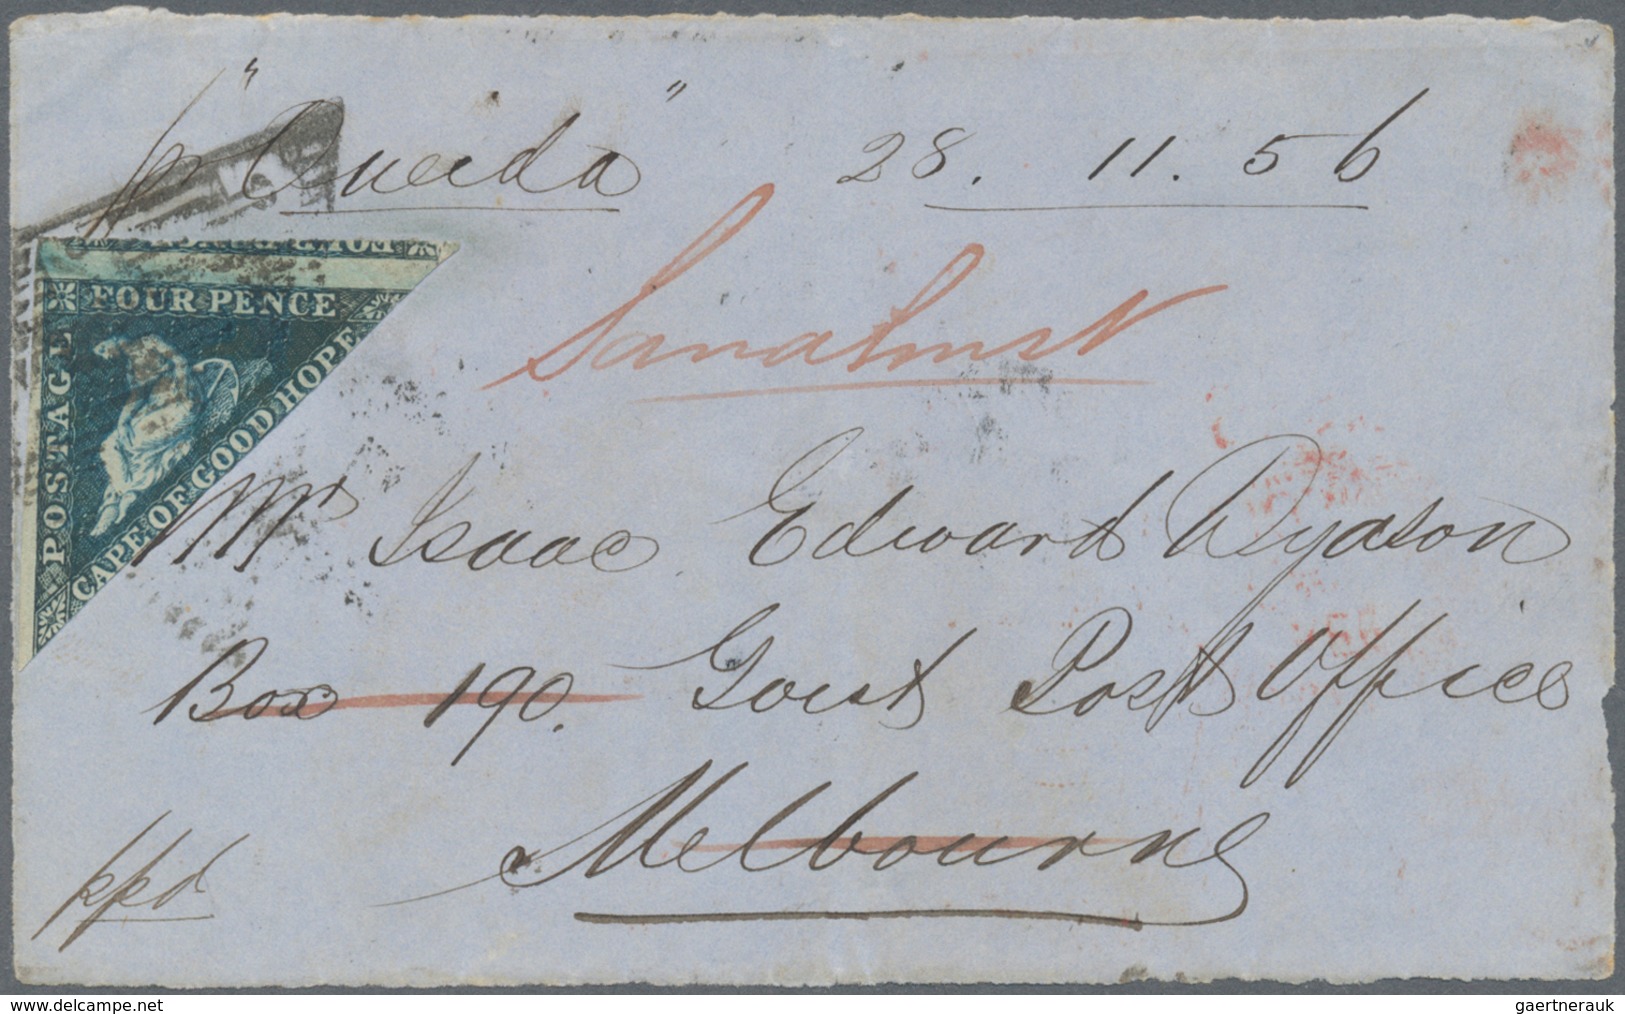 pr "Oneida" 28. 11. 56
FOUR PENCE
POSTAGE
CAPE OF GOOD HOPE
Sandhurst
Mr Isaac Edward Dyason
Box 190. Govt Post Office
Melbourne
ppd
www.delcampe.net
gaertnerauk